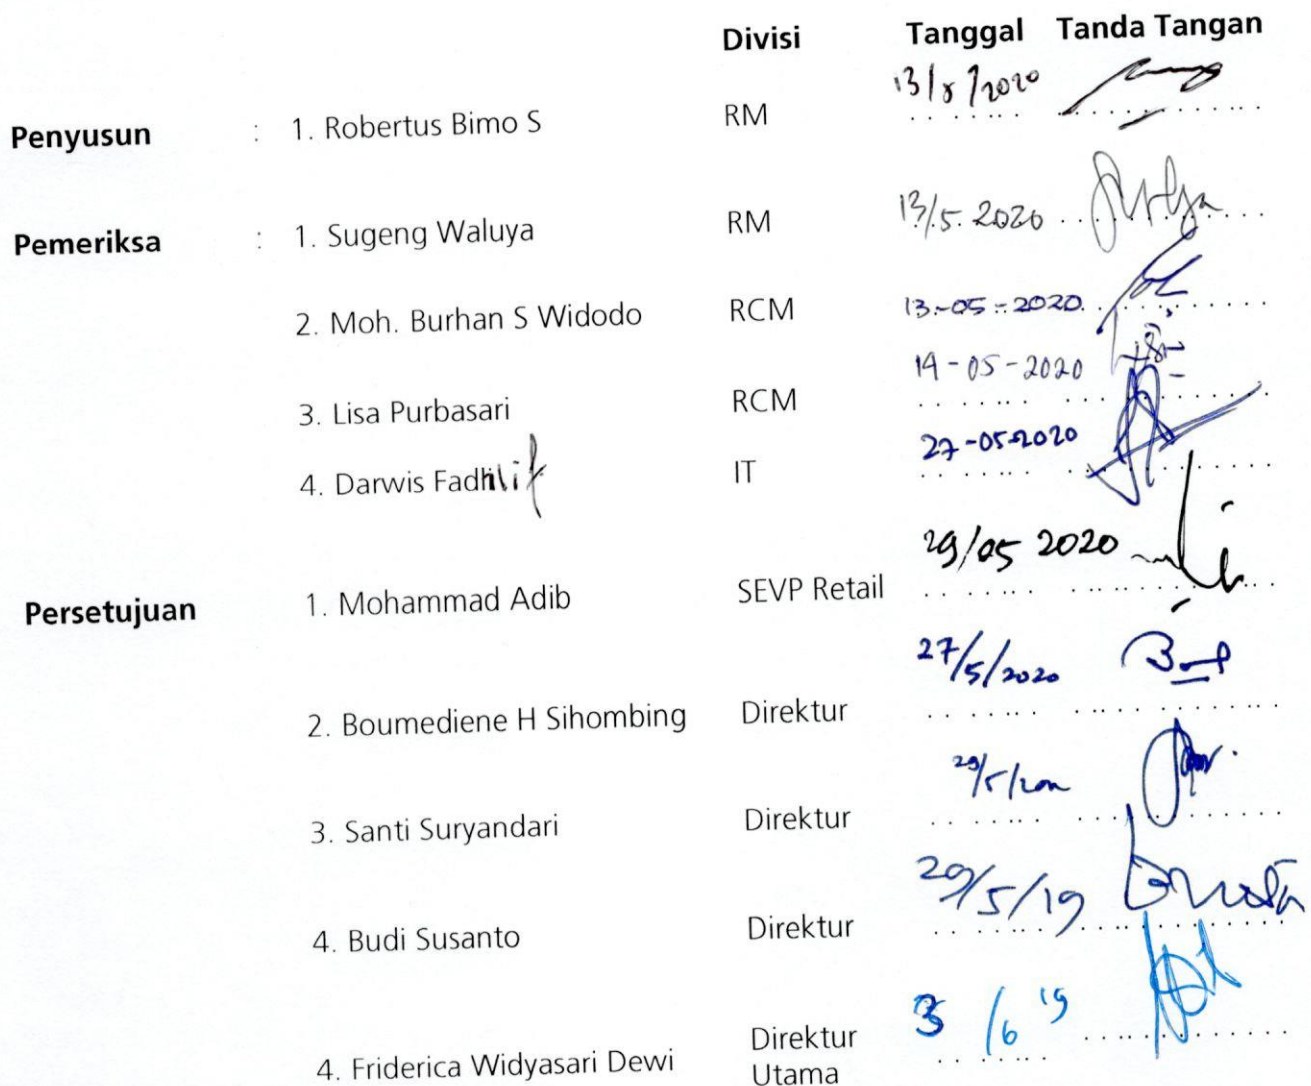 Divisi Tanggal Tanda Tangan
Penyusun : 1. Robertus Bimo S RM 13/5/2020
Pemeriksa : 1. Sugeng Waluya RM 13/5.2020
2. Moh. Burhan S Widodo RCM 13-05-2020
3. Lisa Purbasari RCM 14-05-2020
4. Darwis Fadhlif IT 27-05-2020
Persetujuan 1. Mohammad Adib SEVP Retail 29/05 2020
2. Boumediene H Sihombing Direktur 27/5/2020
3. Santi Suryandari Direktur
4. Budi Susanto Direktur 29/5/19
4. Friderica Widyasari Dewi Direktur Utama 3/6 19